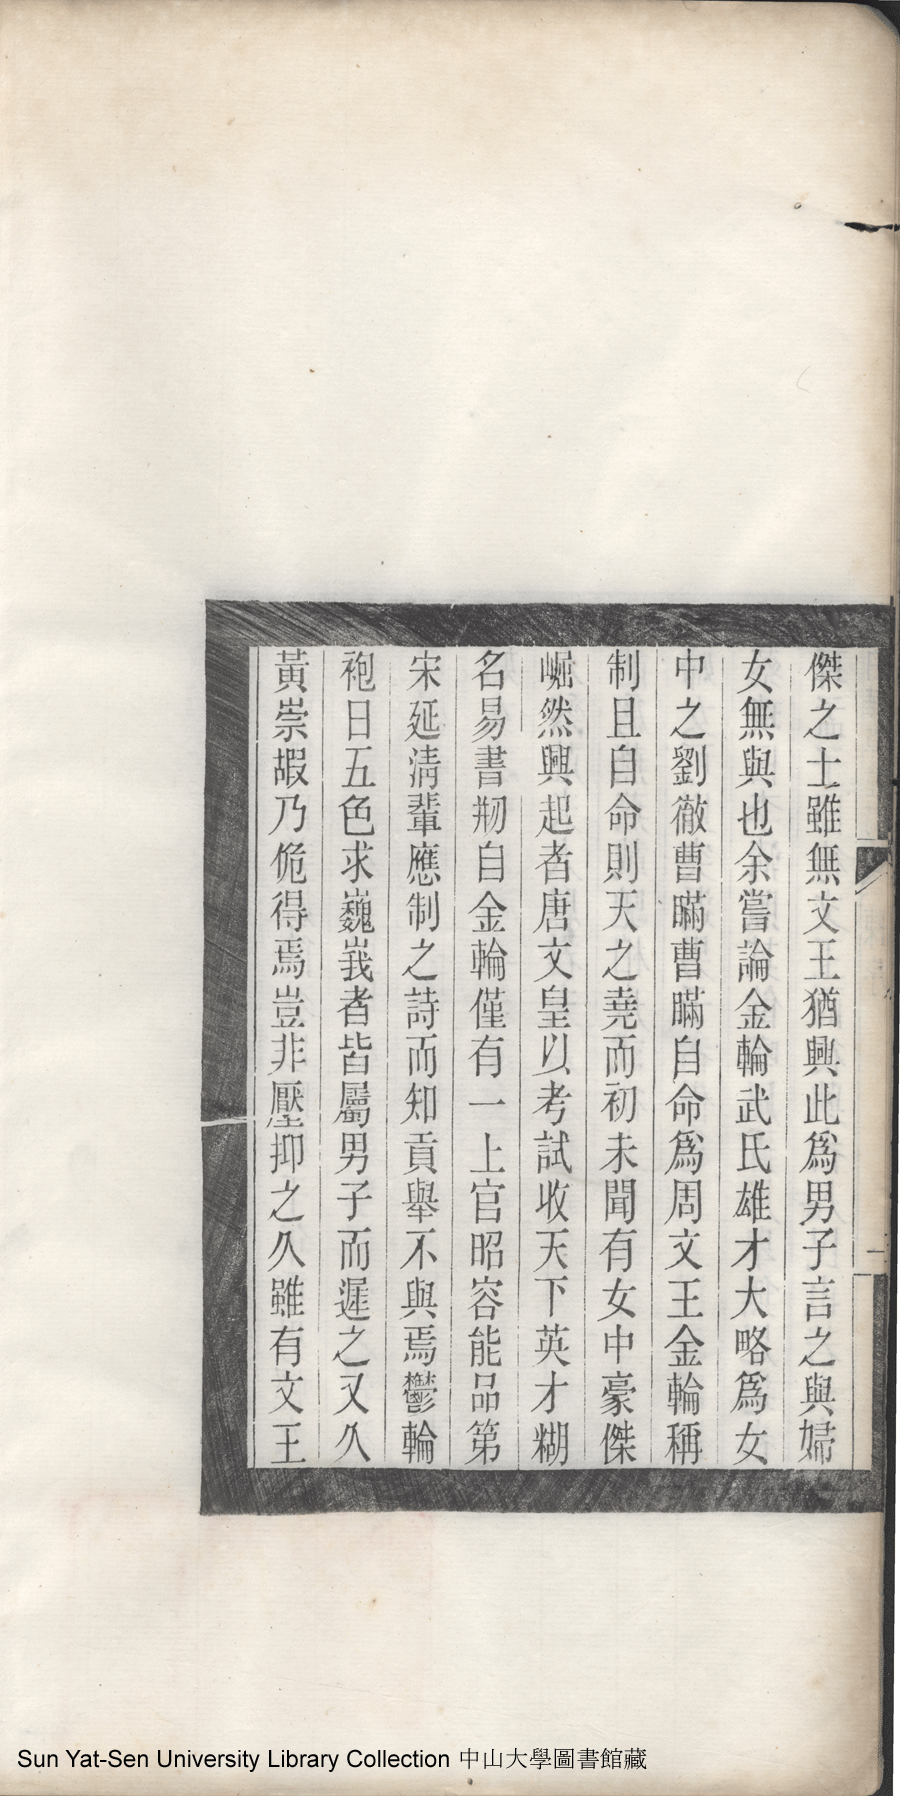 傑之士雖無文王猶興此爲男子言之與婦
女無與也余嘗論金輪武氏雄才大略爲女
中之劉徹曹瞞曹瞞自命爲周文王金輪稱
制且自命則天之堯而初未聞有女中豪傑
崛然興起者唐文皇以考試收天下英才糊
名易書剏自金輪僅有一上官昭容能品第
宋延清輩應制之詩而知貢舉不與焉鬱輪
袍日五色求巍峩者皆屬男子而遲之又久
黃崇嘏乃佹得焉豈非壓抑之久雖有文王
二
Sun Yat-Sen University Library Collection 中山大學圖書館藏